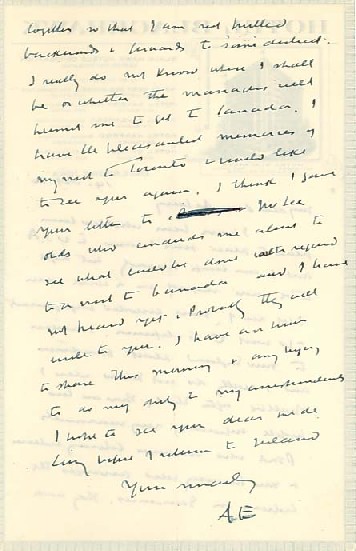 together so that I am not pulled
backwards & forwards to some
I really do not know when I shall
be or whether the managers will
permit me to get to Canada. I
have the pleasantest memories of
my visit to Toronto & would like
to see you again. I think I gave
your letter to
who conducts me about to
see what could be done with regard
to a visit to Canada and I have
not heard yet. Probably they will
write to you. I have an hour
to spare this morning & am trying
to do my duty to my correspondents
I hope to see your dear wide
when I return to Ireland
Yours sincerely
AE